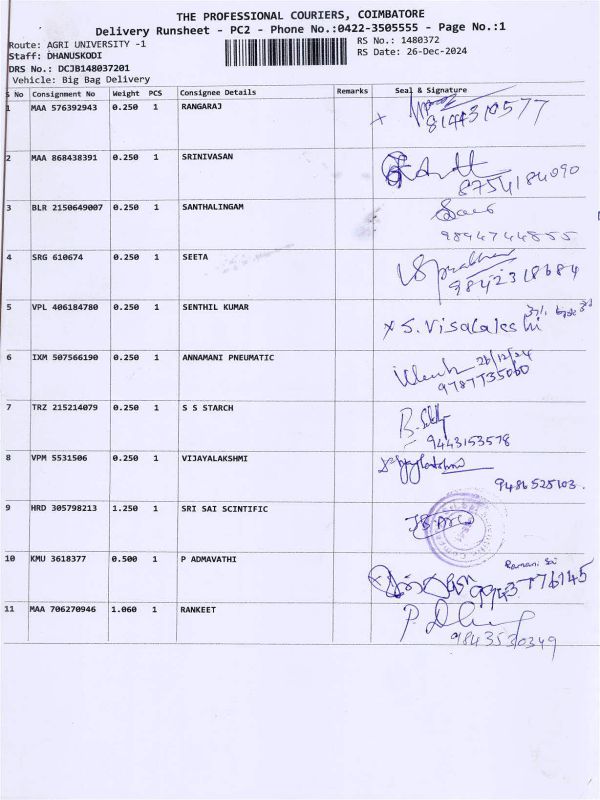 THE PROFESSIONAL COURIERS, COIMBATORE
Delivery Runsheet - PC2 - Phone No.:0422-3505555 - Page No.:1
Route: AGRI UNIVERSITY -1
RS No.: 1480372
Staff: DHANUSKODI
RS Date: 26-Dec-2024
DRS No.: DCJB148037201
Vehicle: Big Bag Delivery
S No Consignment No Weight PCS Consignee Details Remarks Seal & Signature
1 MAA 576392943 0.250 1 RANGARAJ
8144310577
2 MAA 868438391 0.250 1 SRINIVASAN
8754184090
3 BLR 2150649007 0.250 1 SANTHALINGAM
9894744855
4 SRG 610674 0.250 1 SEETA
9842318684
5 VPL 406184780 0.250 1 SENTHIL KUMAR
x S. Visalakshi
6 IXM 507566190 0.250 1 ANNAMANI PNEUMATIC
26/12/24
9787735060
7 TRZ 215214079 0.250 1 S S STARCH
9443153578
8 VPM 5531506 0.250 1 VIJAYALAKSHMI
9486525103.
9 HRD 305798213 1.250 1 SRI SAI SCINTIFIC
10 KMU 3618377 0.500 1 P ADMAVATHI
9943776145
11 MAA 706270946 1.060 1 RANKEET
9843530349